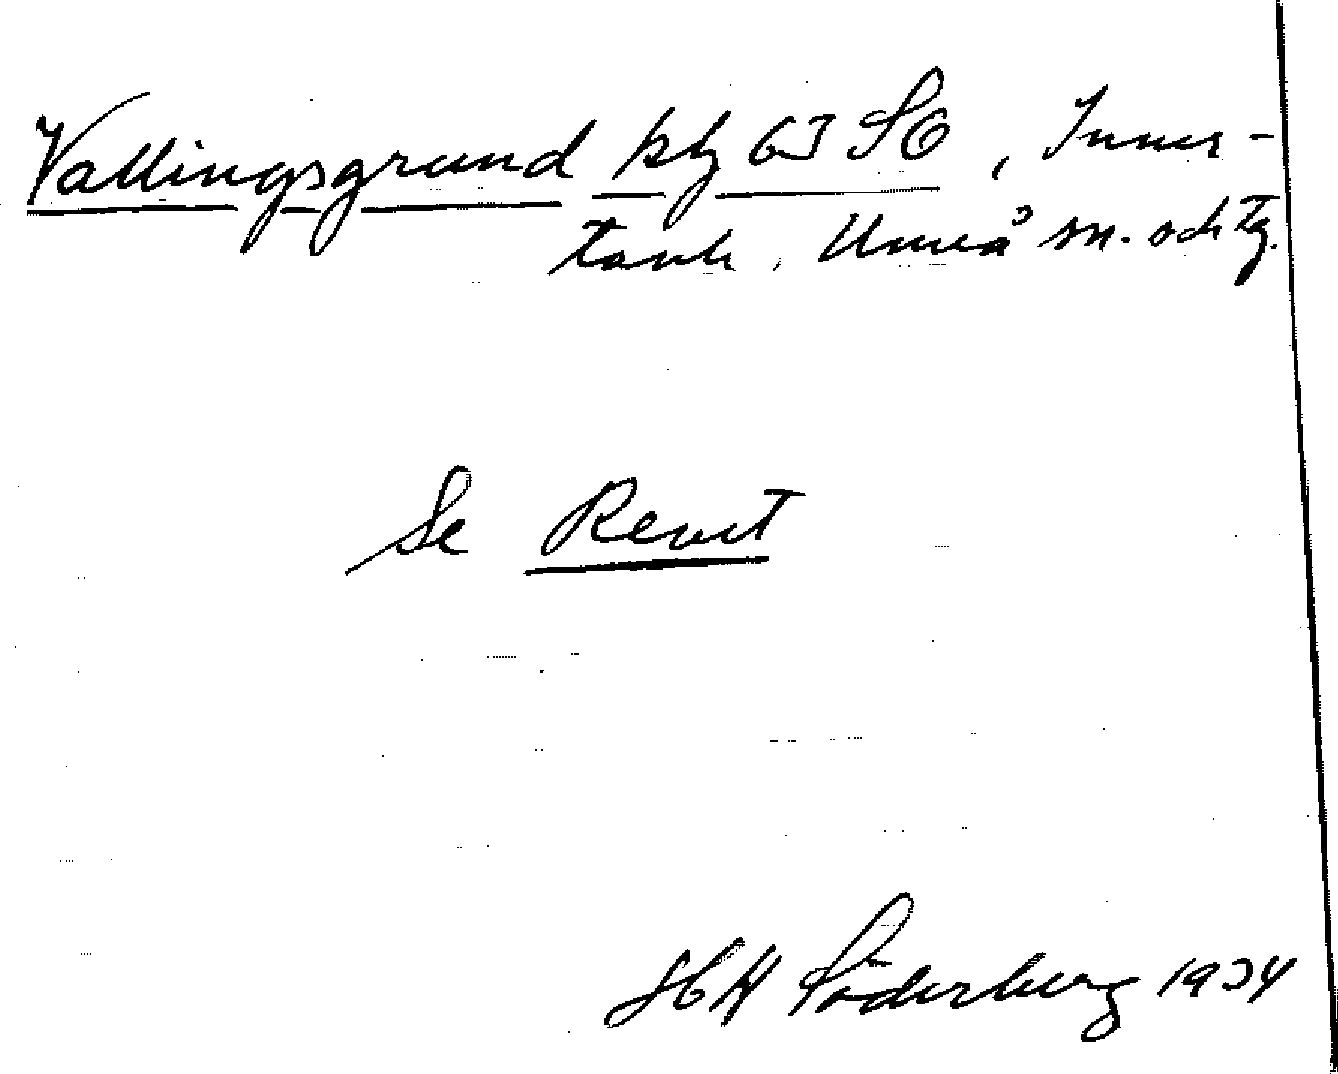 Vallingsgrund kbl 63 SO, Inner-
tavle, Umeå sn. och tg.
Se Revet
H Söderberg 1934